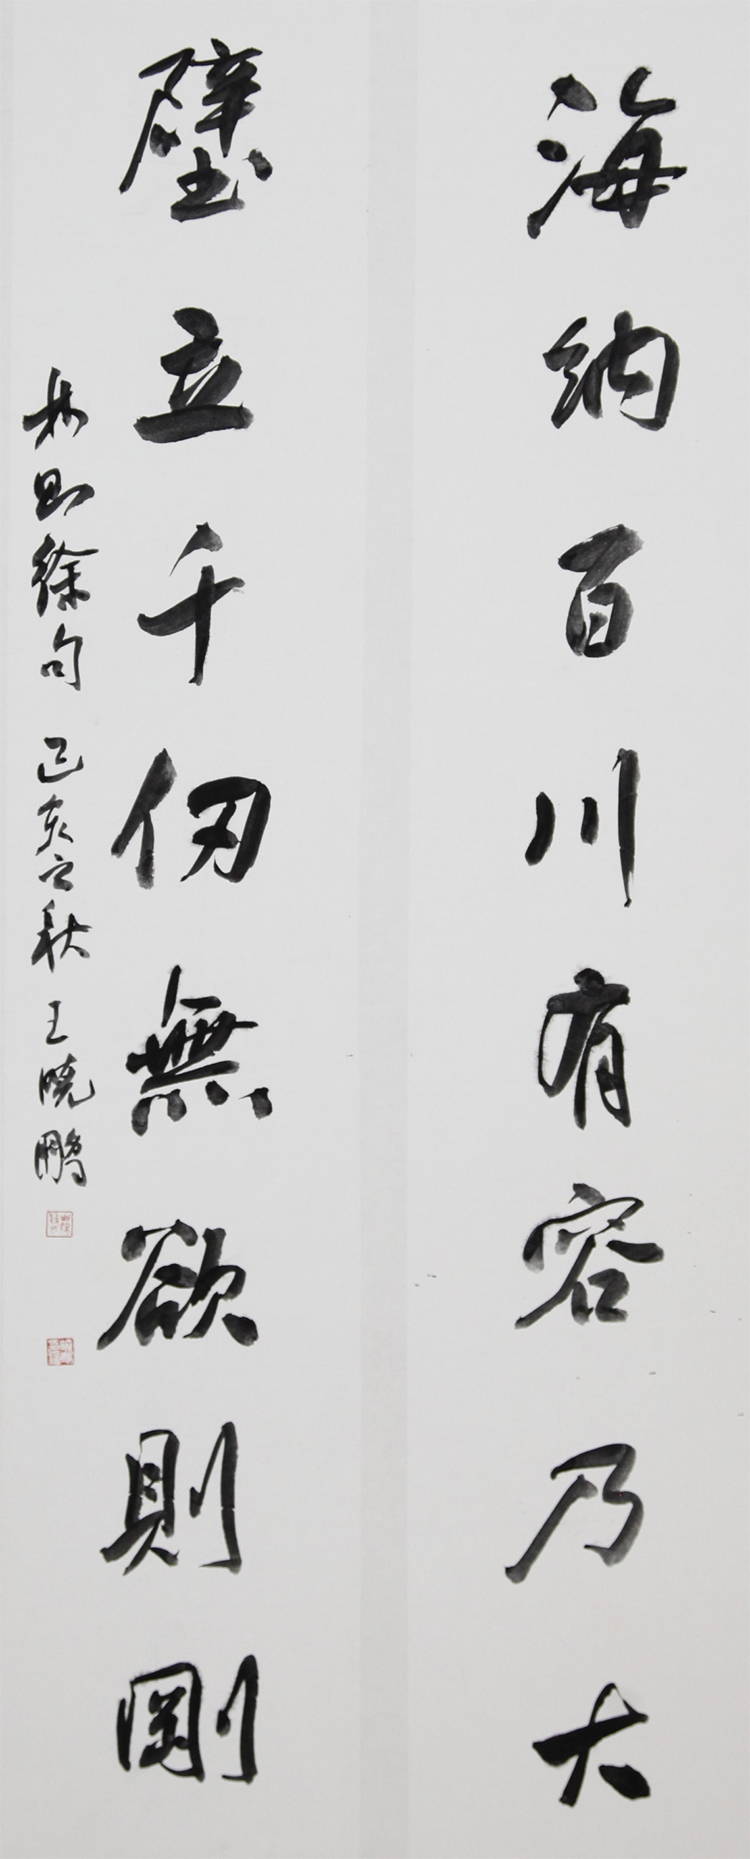 海納百川有容乃大
壁立千仞無欲則剛
林则徐句 己亥之秋 王晓鹏